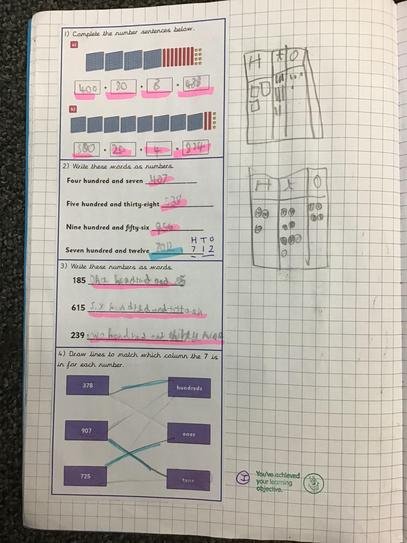 1) Complete the number sentences below.
a)
400 + 80 + 8 = 488
b)
20 4 824
2) Write these words as numbers.
Four hundred and seven 407
Five hundred and thirty-eight 538
Nine hundred and fifty-six 956
H T O
Seven hundred and twelve 7 1 2
3) Write these numbers as words.
185 hundred and
615 Six hundred
239 two hundred and thirty nine
4) Draw lines to match which column the 7 is
in for each number.
378 hundreds
907 ones
725 tens
H T O
H T O
I
You've achieved
your learning
objective.